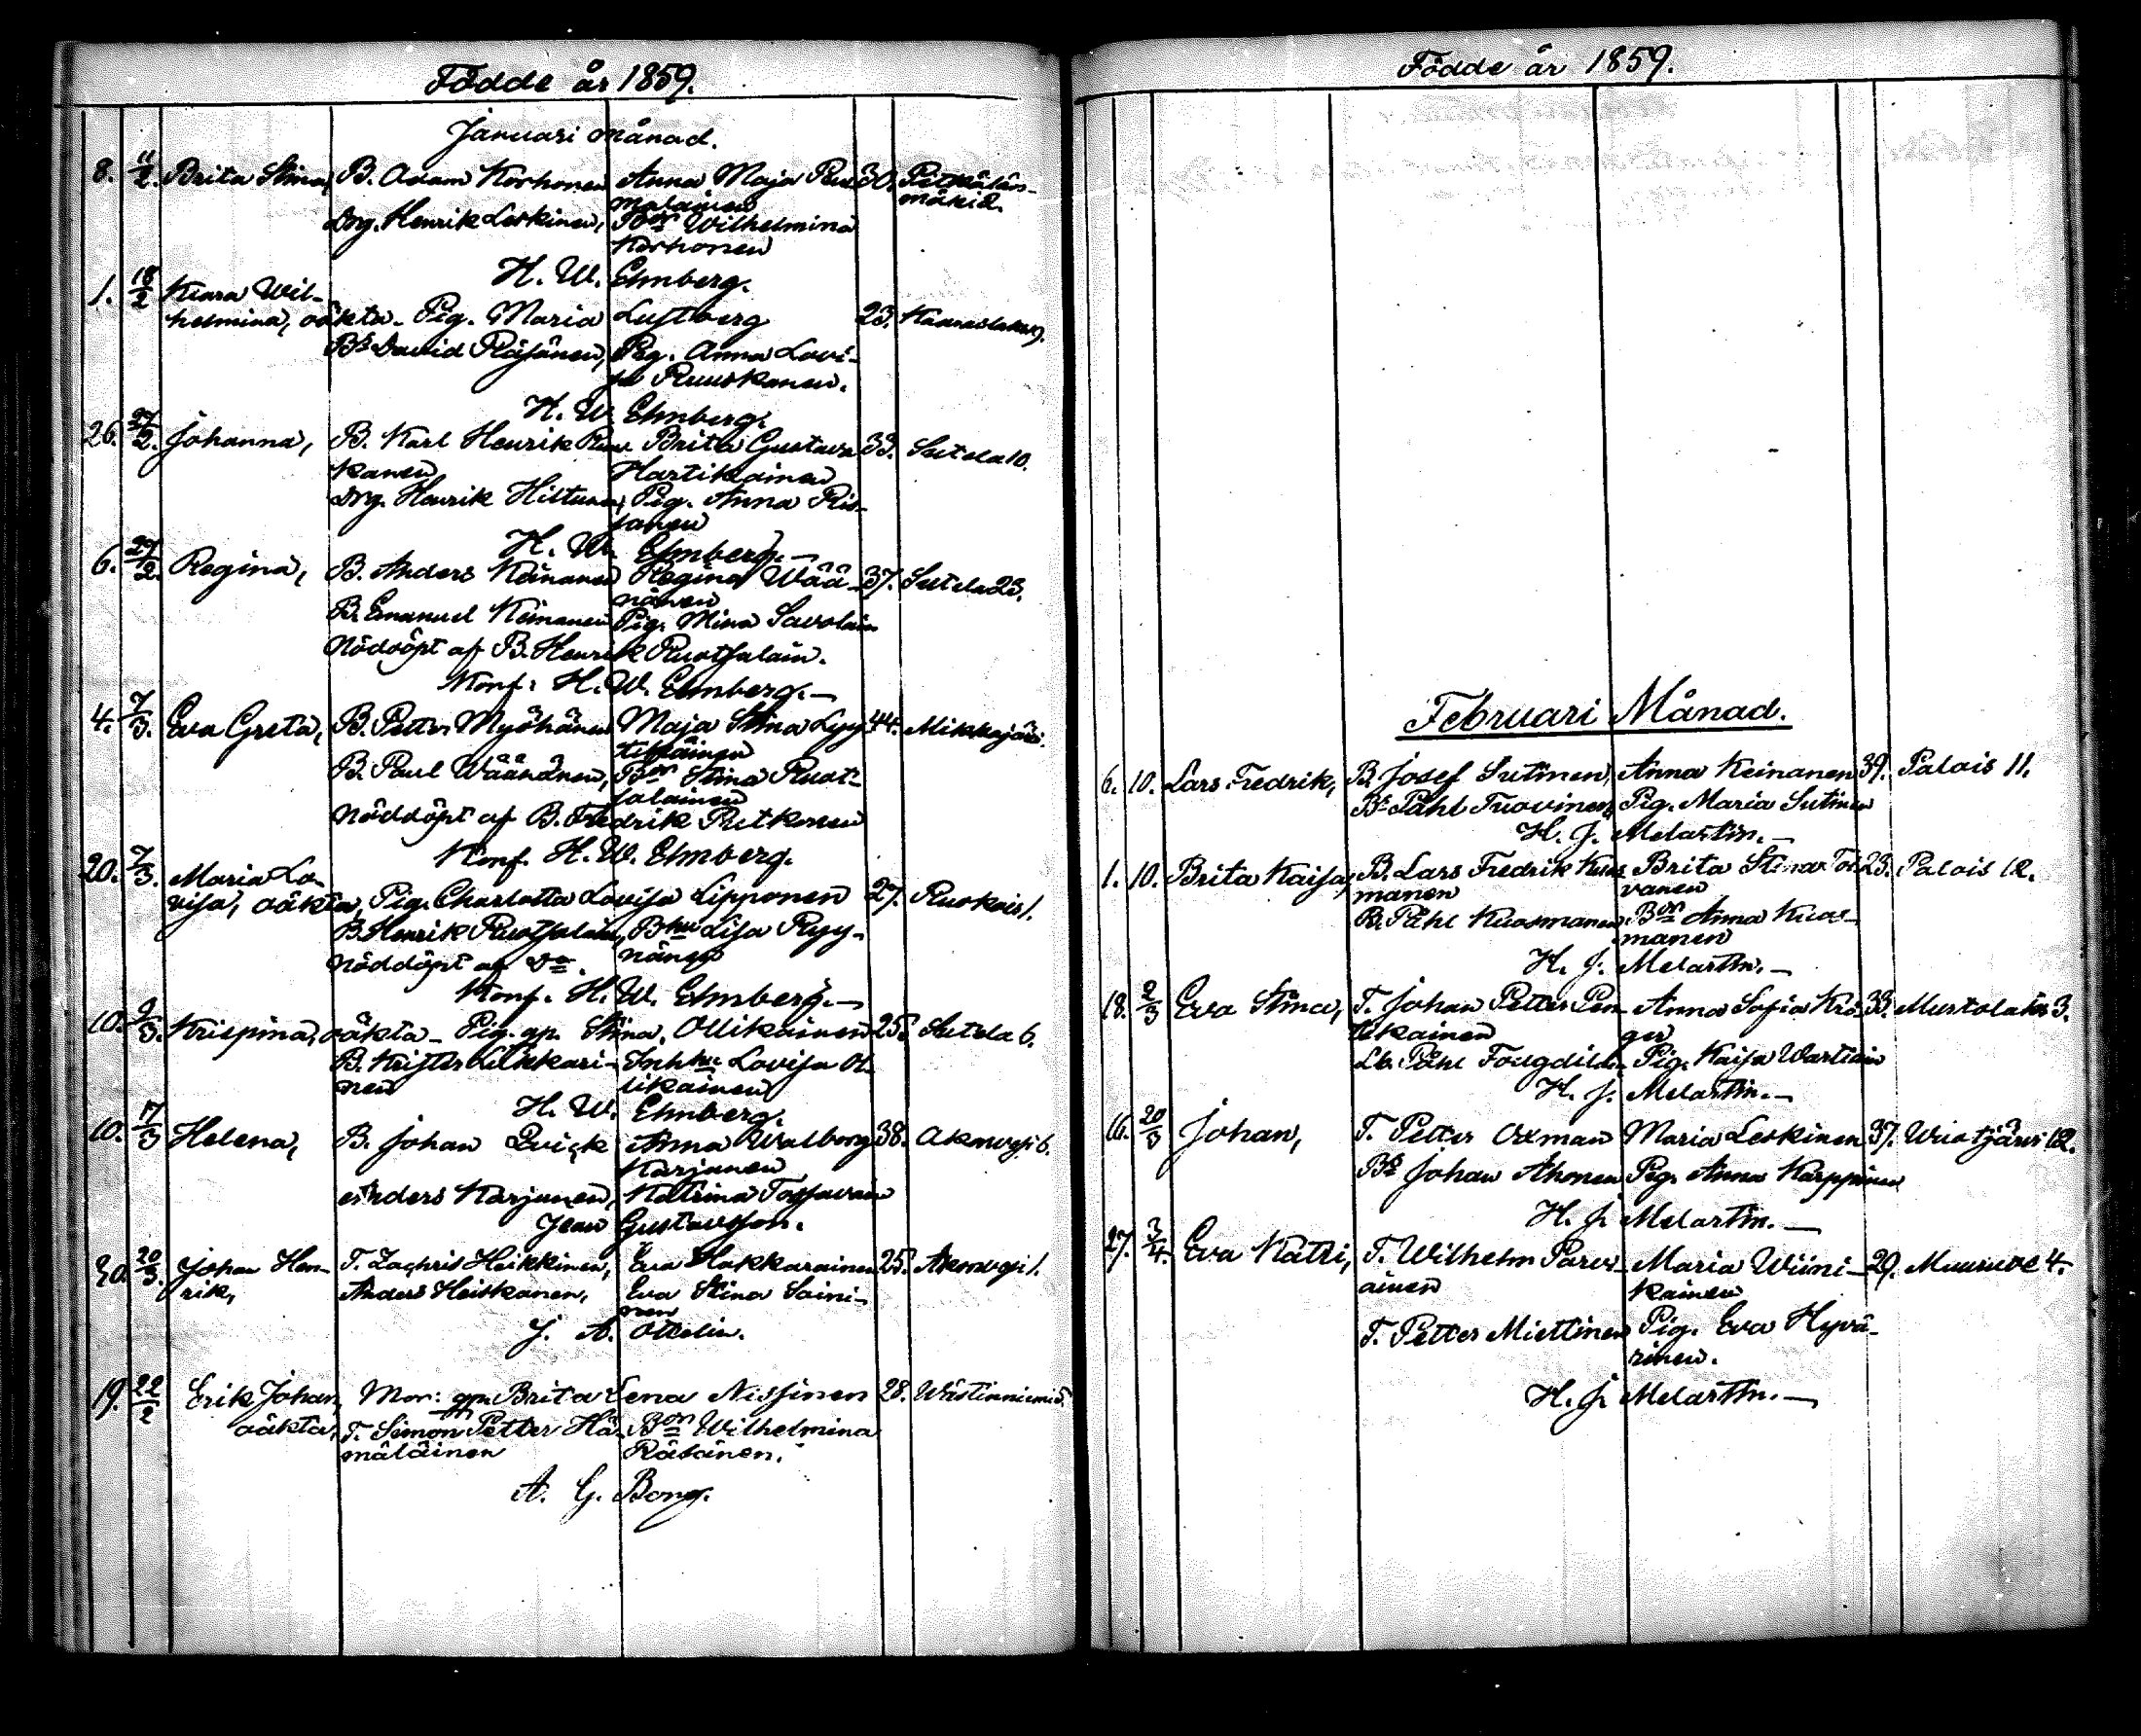 Födde år 1859.
Januari Månad.
8. 11/2. Brita Stina, B. Adam Korhonen Anna Maja 30. Pitkälän-
malainen mäki 2.
Drg. Henrik Leskinen, B:on Wilhelmina
Korhonen
H. W. Ehnberg.
1. 18/2 Klara Wil-
helmina, oäkta. Pig. Maria Luftberg 23.
B:s David Räsänen, Pig. Anna Lovi-
sa Ruuskanen.
H. W. Ehnberg.
26. 27/2. Johanna, B. Karl Henrik Ruus- Brita Gustava 33. Sutela 10.
kanen Hartikainen
Drg. Henrik Hiltunen, Pig. Anna Ris-
sanen
H. W. Ehnberg.—
6. 27/2. Regina, B. Anders Keinanen Regina Wää- 37. Sutela 23.
nänen
B. Emanuel Keinanen Pig. Mina Savolain
Nöddöpt af B. Henrik Ruotsalain.
Konf. H. W. Ehnberg.—
4. 7/3. Eva Greta, B. Petter Myöhänen Maja Stina Lyy- 44. Mikkajärvi.
tikäinen
B. Paul Wäänänen, B:on Stina Ruot-
salainen
Nöddöpt af B. Fredrik Putkonen
Konf. H. W. Ehnberg.
20. 7/3. Maria Lo-
visa, oäkta, Pig. Charlotta Lovisa Lipponen 27. Ruokois 1.
B. Henrik Ruotsalain, B:hu Lisa Ryy-
Nöddöpt af D:o. nänen
Konf. H. W. Ehnberg.—
10. 9/3. Krispina, oäkta— Pig. gp. Stina Ollikainen 25. Sutela 6.
B. Krister Likkari- Inh:hu Lovisa Ol-
nen likainen
H. W. Ehnberg.
10. 17/3 Helena, B. Johan Qvick Anna Walborg 38. Akonvesi 6.
Karjanen
Anders Karjunen, Katrina Tossavain
Jean Gustavsson.
30. 20/3. Johan Hen- T. Zachris Heikkinen, Eva Hakkarainen 25. Akonvesi 1.
rik, Anders Heiskanen, Eva Stina Soini-
nen
J. A. Ottelin.
19. 22/2 Erik Johan, Mor: gpn Brita Lena Nissinen 28. Wästinniemi 5.
oäkta, T. Simon Petter Hä- B:on Wilhelmina
mäläinen Räsänen.
A. G. Bong.
Födde år 1859.
Februari Månad.
6. 10. Lars Fredrik, B. Josef Sutinen, Anna Keinanen 39. Palois 11.
B:s Påhl Tuovinen, Pig. Maria Sutinen
H. J. Melartin.—
1. 10. Brita Kaisa, B. Lars Fredrik Kuos- Brita Stina Toi- 23. Palois 12.
manen vanen
B. Påhl Kuosmanen B:on Anna Kuos-
manen
H. J. Melartin.—
18. 2/3 Eva Stina, T. Johan Petter Pen- Anna Sofia Krö- 33. Mustolaks 3.
tikainen ger
Påhl Pig. Kaisa Wartiain
H. J. Melartin.—
16. 20/3 Johan, T. Petter Oxman Maria Leskinen 37. Wuotjärvi 12.
B:s Johan Ahonen Pig. Anna Karppinen
H. J. Melartin.—
27. 3/4. Eva Katri, T. Wilhelm Parvi- Maria Wiini- 29. Muuruve 4.
ainen kainen
T. Petter Miettinen Pig. Eva Hyvä-
rinen.
H. J. Melartin.—